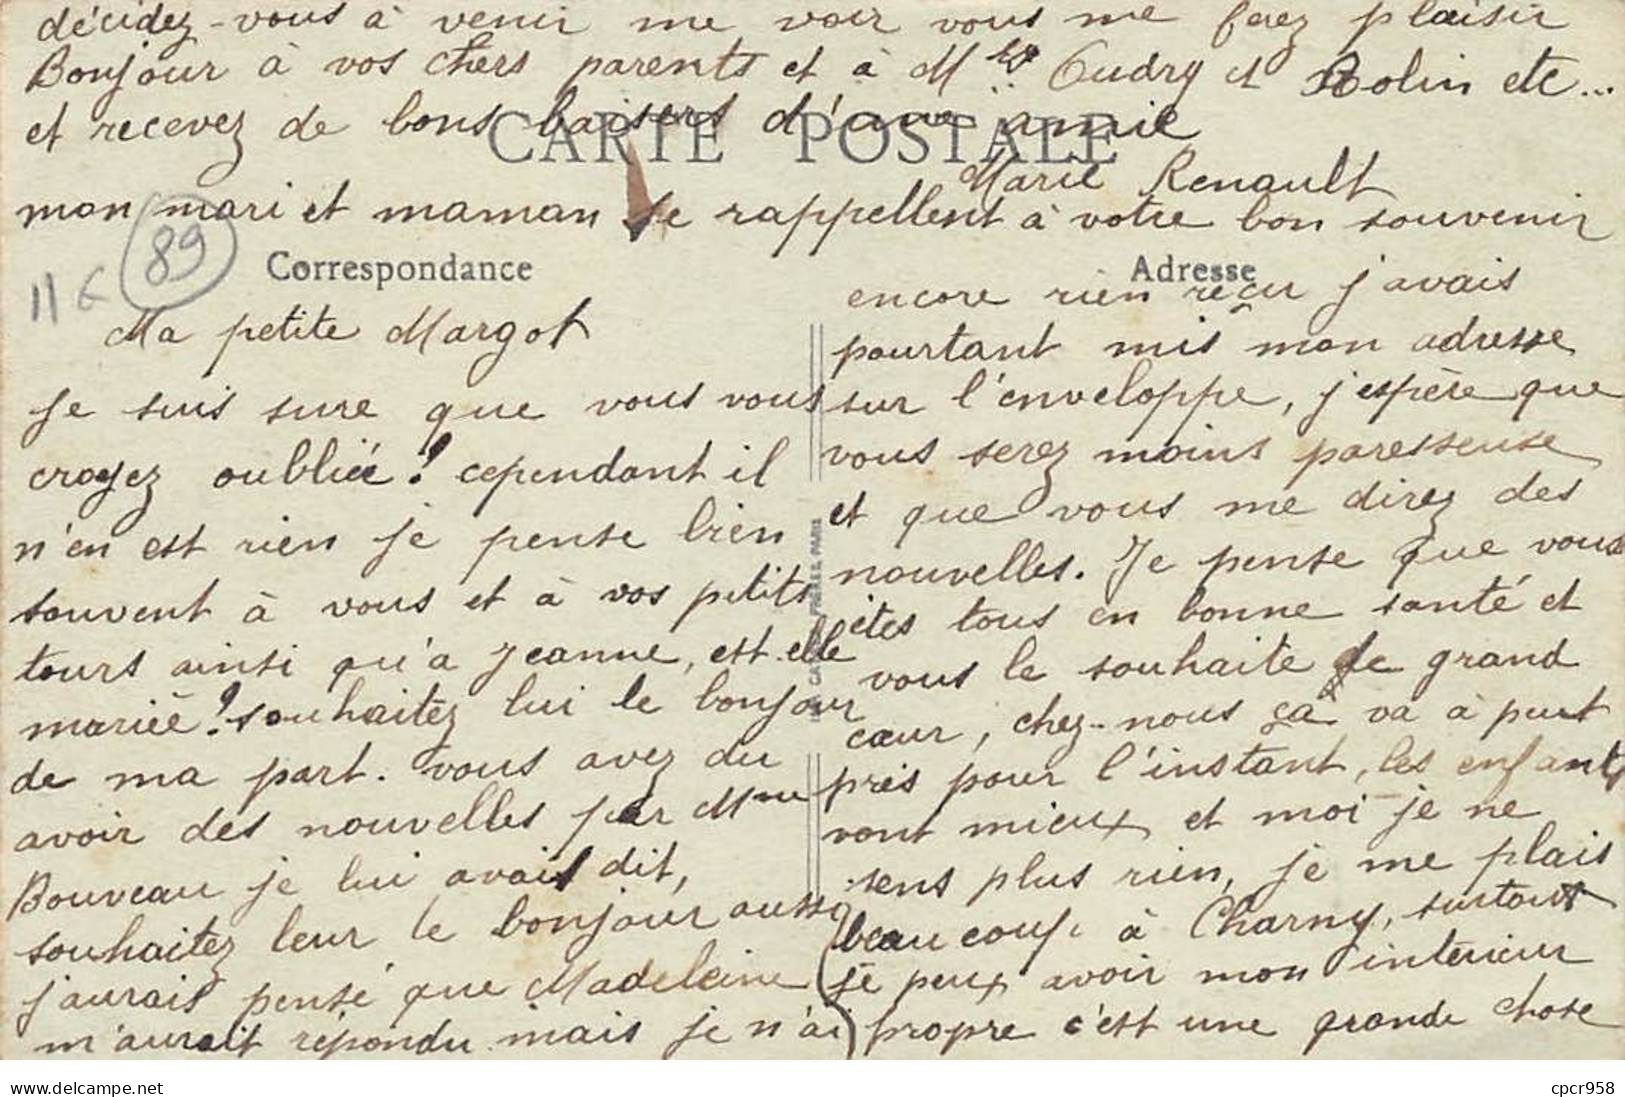 décidez-vous à venir me voir vous me ferez plaisir
Bonjour à vos chers parents et à Mrs Oudry et Rolin etc...
et recevez de bons baisers d'une amie
CARTE POSTALE
Marie Renault
mon mari et maman se rappellent à votre bon souvenir
11 €
89
Correspondance
Ma petite Margot
Je suis sure que vous vous
croyez oubliée! cependant il
n'en est rien je pense bien
souvent à vous et à vos petits
tours ainsi qu'a Jeanne, est elle
mariée! souhaitez lui le bonjour
de ma part. vous avez du
avoir des nouvelles par Mme
Bouveau je lui avais dit,
souhaitez leur le bonjour aussi
j'aurais pensé que Madeleine
m'aurait répondu mais je n'ai
FRÈRES, PARIS
Adresse
encore rien reçu j'avais
pourtant mis mon adresse
sur l'enveloppe, j'espère que
vous serez moins paresseuse
et que vous me direz des
nouvelles. Je pense que vous
êtes tous en bonne santé et
vous le souhaite de grand
cœur, chez-nous ça va à peut
près pour l'instant, les enfants
vont mieux et moi je ne
sens plus rien, je me plais
beaucoup à Charny, surtout
je peux avoir mon intérieur
propre c'est une grande chose
www.delcampe.net
cpcr958